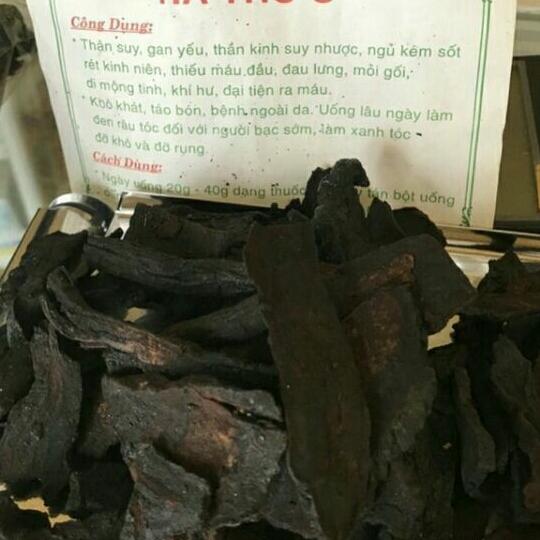 HÀ THỦ Ô
Công Dụng:
* Thận suy, gan yếu, thần kinh suy nhược, ngủ kém sốt
rét kinh niên, thiếu máu đầu, đau lưng, mỏi gối,
di mộng tinh, khí hư, đại tiện ra máu.
* Khô khát, táo bón, bệnh ngoài da. Uống lâu ngày làm
đen râu tóc đối với người bạc sớm, làm xanh tóc
đỡ khô và đỡ rụng.
Cách Dùng:
* Ngày uống 20g - 40g dạng thuốc tán bột uống